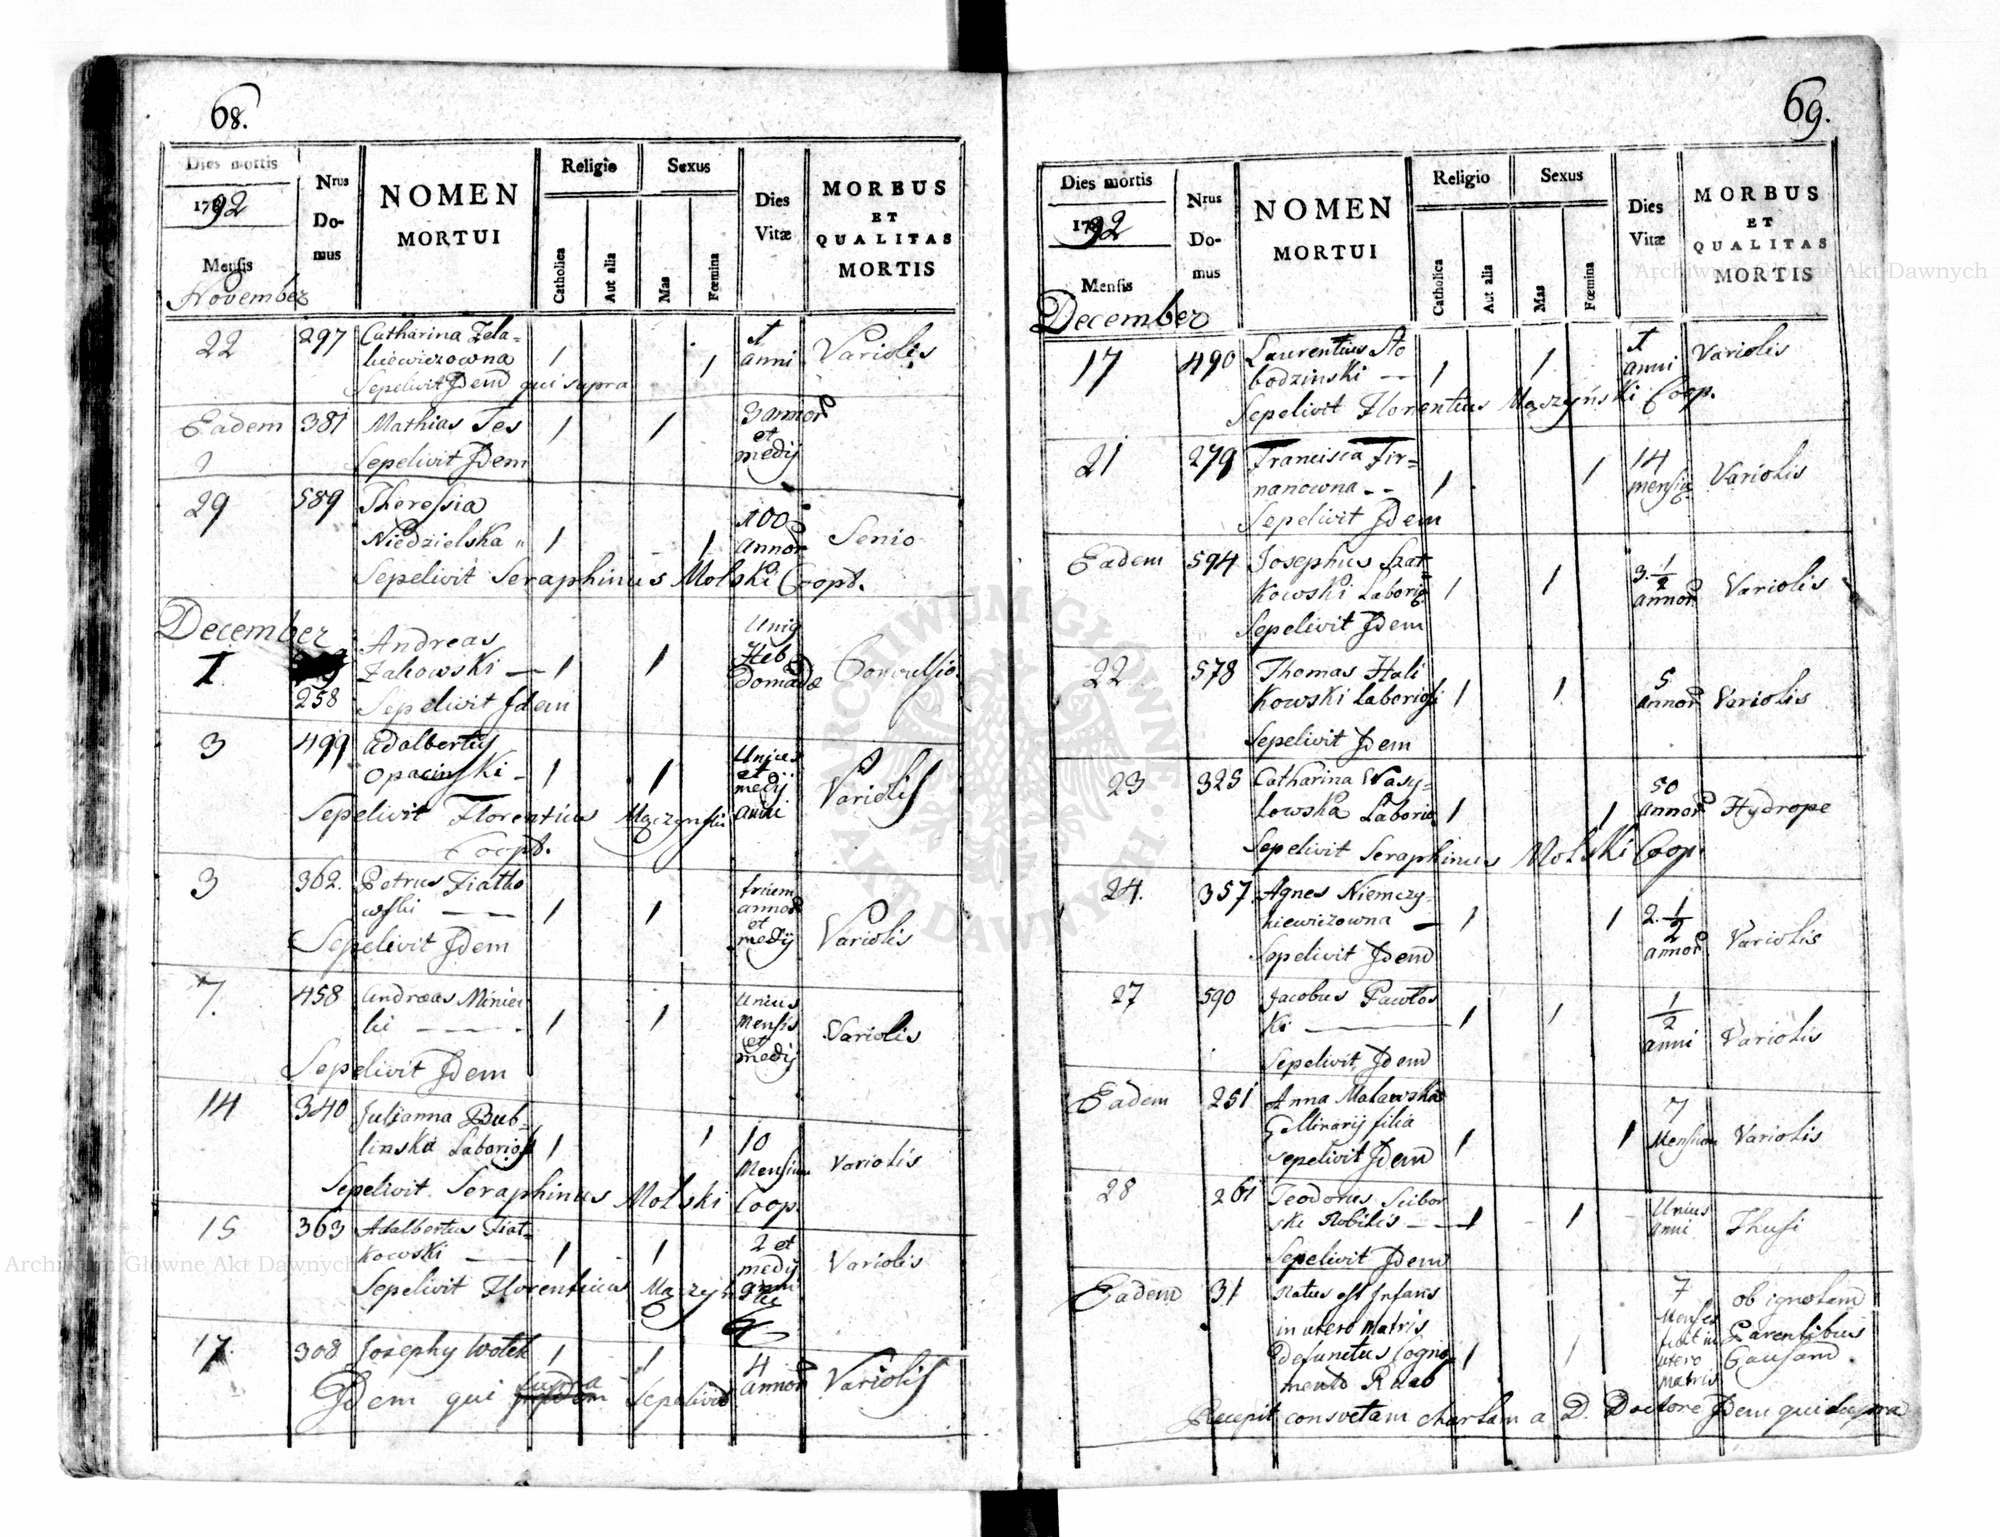 68.
Dies mortis
1792
Mensis
November
Nrus
Do-
mus
NOMEN
MORTUI
Religio
Catholica
Aut alia
Sexus
Mas
Fœmina
Dies
Vitæ
MORBUS
ET
QUALITAS
MORTIS
22 297 Catharina Zela- 1 anni Variolis
kiewiczowna 1 1
Sepelivit Idem qui supra
Eadem 381 Mathias Tes 1 1 3 annor
et
medij
Sepelivit Idem
29 589 Theressia 100 Senio
Niedzielska 1 1 annor
Sepelivit Seraphinus Molski Coopt.
December
1 Andreas Unig
Zalowski — 1 1 Heb Convulsio.
domadæ
258 Sepelivit Idem
3 499 Adalbertus Unius
Opacinski - 1 1 et Variolis
medij
anni
Sepelivit Florentius Mączynski
Coopt.
3 362. Petrus Fiatko trium
wski — — 1 1 annor Variolis
et
medij
Sepelivit Idem
7. 458 Andreas Miniec Unius
ki — — 1 1 Mensis Variolis
et
medij
Sepelivit Idem
14 340 Julianna Bub- 1 10
linska Laborios 1 Mensium Variolis
Sepelivit Seraphinus Molski Coop.
15 363 Adalbertus Fiat- 2 et
kowski — 1 1 medij Variolis
anni
Sepelivit Florentius
17. 308 Josephy Wolek 1 1 4
annor Variolis
Idem qui supra Sepelivit
69.
Dies mortis
1792
Mensis
December
Nrus
Do-
mus
NOMEN
MORTUI
Religio
Catholica
Aut alia
Sexus
Mas
Fœmina
Dies
Vitæ
MORBUS
ET
QUALITAS
MORTIS
17 490 Laurentius Sło 1 Variolis
bodzinski — 1 1 anni
Sepelivit Florentius Mączyński Coop.
21 279 Francisca Fir- 14
nanowna - - 1 1 mensiu Variolis
Sepelivit Idem
Eadem 594 Josephus Szat 3. 1/2
kowski Laborig 1 1 annor Variolis
Sepelivit Idem
22 578 Thomas Hali 5
kowski Laboriosi 1 1 annor Variolis
Sepelivit Idem
23 325 Catharina Wasy- 50
lowska Laborio 1 1 annor Hydrope
Sepelivit Seraphinus Molski Coop.
24. 357 Agnes Niemczy- 2. 1/2
kiewiczowna — 1 1 annor Variolis
Sepelivit Idem
27 590 Jacobus Pawłos 1/2
ki — 1 1 anni Variolis
Sepelivit Idem
Eadem 251 Anna Malawska 7
Gallinarij filia 1 1 Mensium Variolis
Sepelivit Idem
28 261 Teodorus Scibor Unius
ski Nobilis — 1 1 anni Thusi
Sepelivit Idem
Eadem 31 Natus est Infans 7 ob ignotam
in utero matris Menses Parentibus
defunctus Cogno- 1 1 utero Causam
mento Raab matris
Recepit consvetam chartam a D. Doctore Idem qui supra
ARCHIWUM GŁÓWNE AKT DAWNYCH
Archiwum Główne Akt Dawnych
Archiwum Główne Akt Dawnych